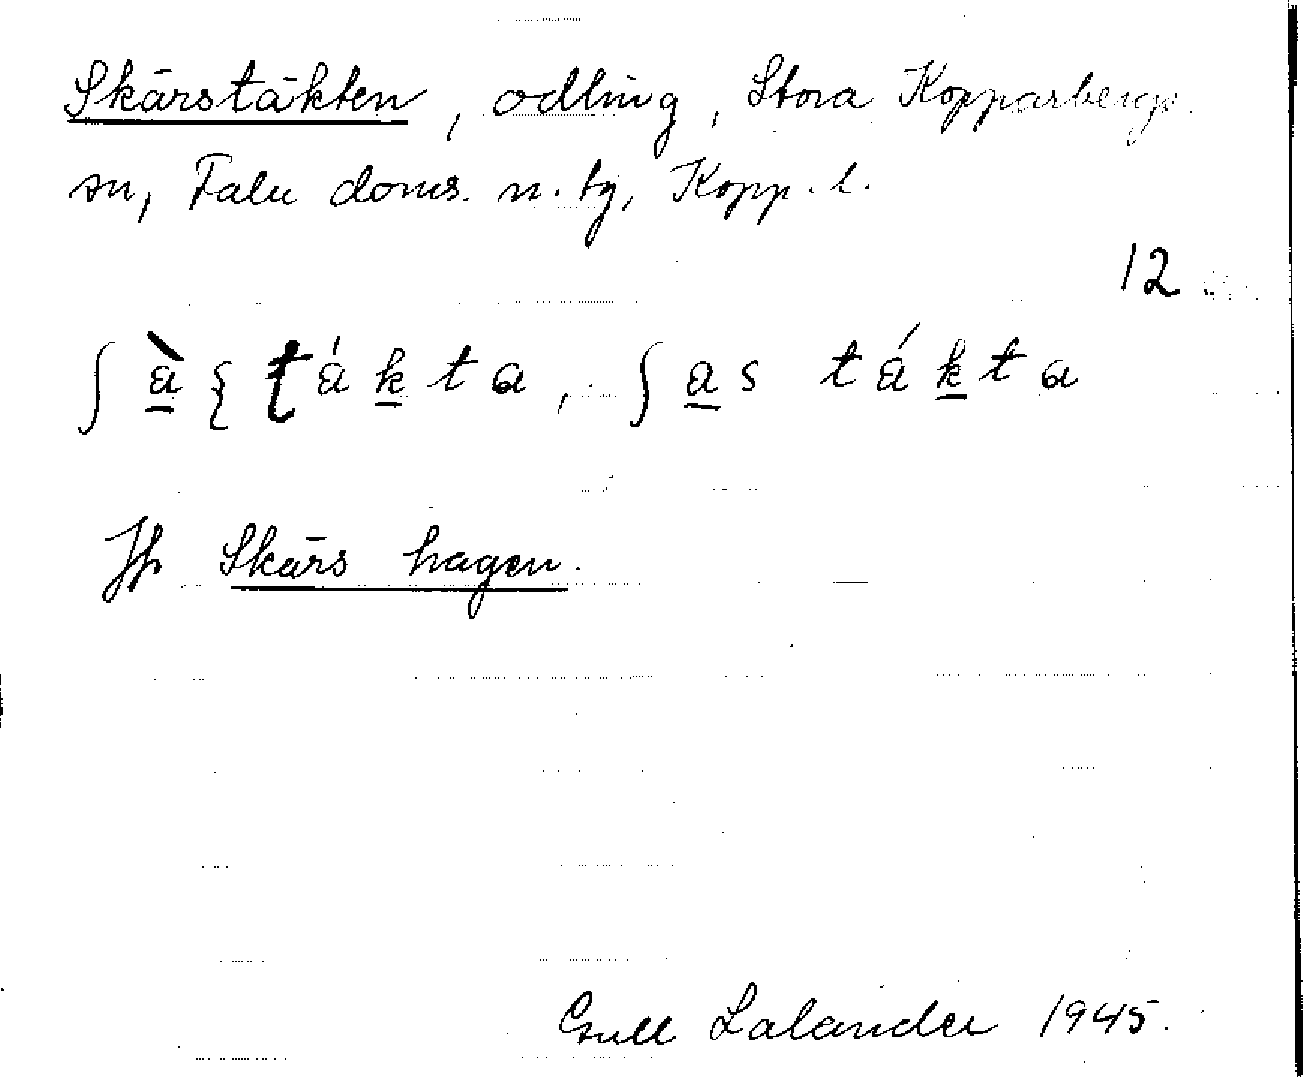 Skärstäkten, odling, Stora Kopparbergs
sn, Falu doms. n. tg, Kopp. l.
12
Jfr Skärs hagen.
Gull Lalander 1945.